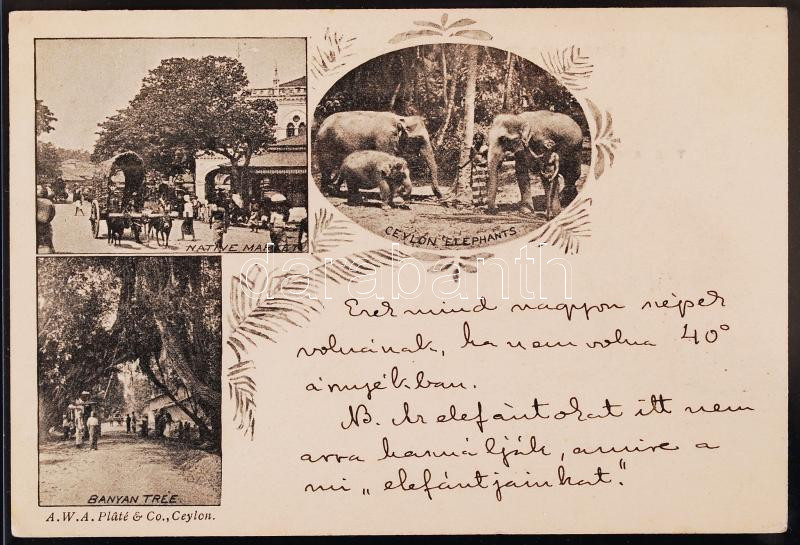 NATIVE MARKET
CEYLON ELEPHANTS
BANYAN TREE.
A.W.A. Plâté & Co., Ceylon.
darabanth
Ezek mind nagyon szépek
volnának, ha nem volna 40°
árnyékban.
NB. Az elefántokat itt nem
arra használják, amire a
mi „elefántjainkat".